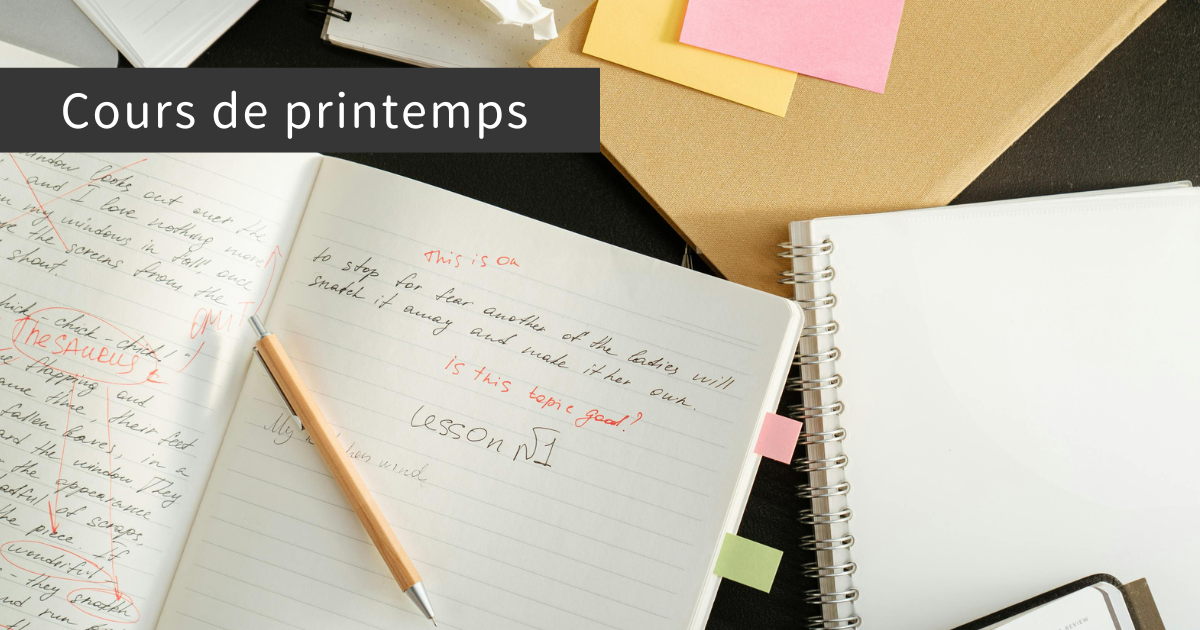 Cours de printemps
window looks out over the
and I love nothing more
my windows in fall, once
the screens from the
shout.
OMIT
chick-chick-chick!
THESAURUS
flapping and
same time, their feet
fallen leaves, in a
and the window. They
the appearance
of scraps,
the piece. If
wonderful
- they snatch
and run
This is on
to stop for fear another of the ladies will
snatch it away and make it her own.
is this topic good?
Lesson №1
My
wind
REVIEW